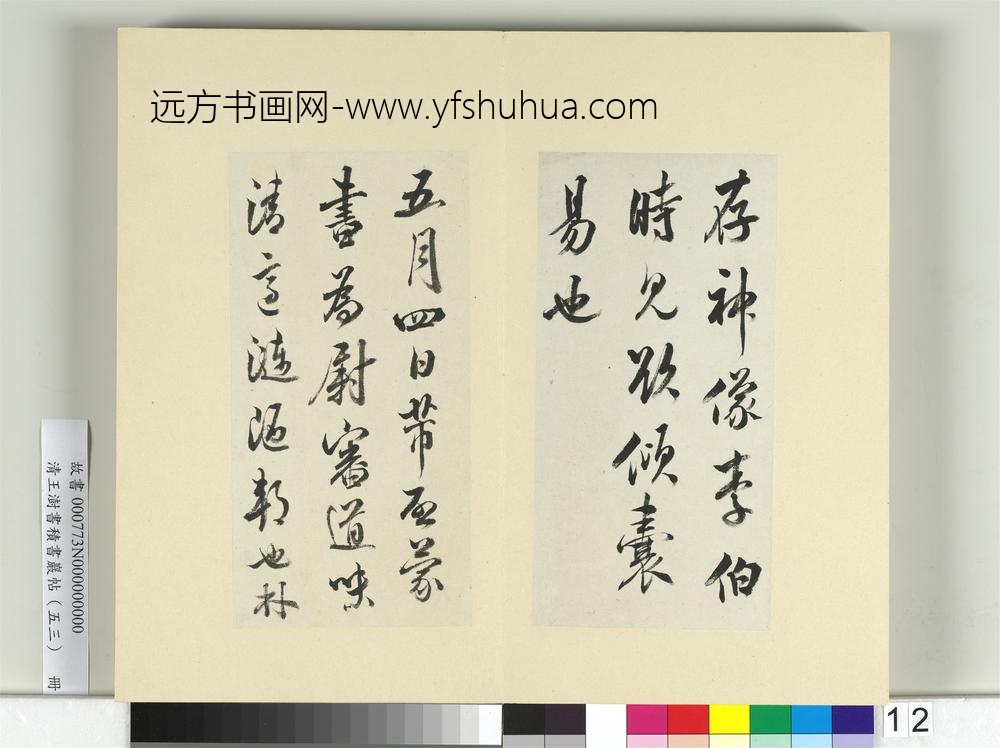 远方书画网-www.yfshuhua.com
存神像李伯
時見欲傾囊
易也
五月四日芾啓蒙
書為尉審道味
清適漣陋邦也林
故書 000773N000000000
清王澍書積書巖帖（五三） 冊
12